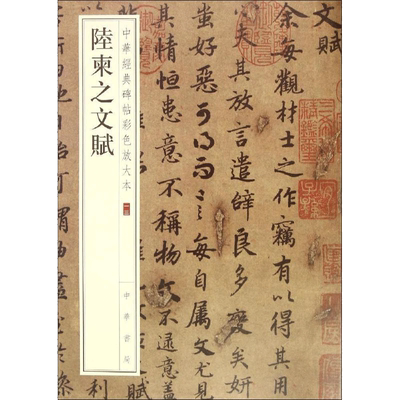 陸柬之文賦
中華經典碑帖彩色放大本
中華書局
文賦
余每觀材士之作竊有以得其用
心夫其放言遣辭良多變矣妍
蚩好惡可得而言每自屬文尤見
其情恒患意不稱物文不逮意蓋